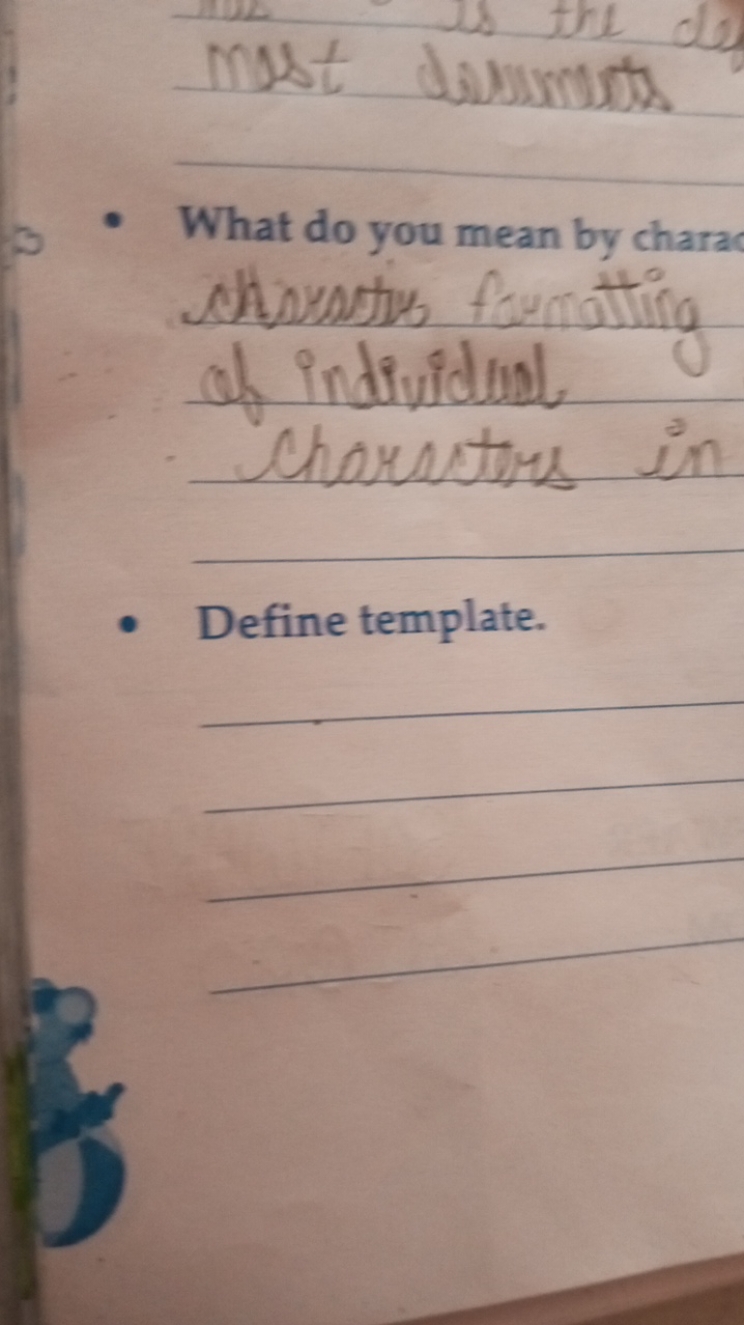 is the
most documents
• What do you mean by charac
character formatting
of individual
characters in
• Define template.